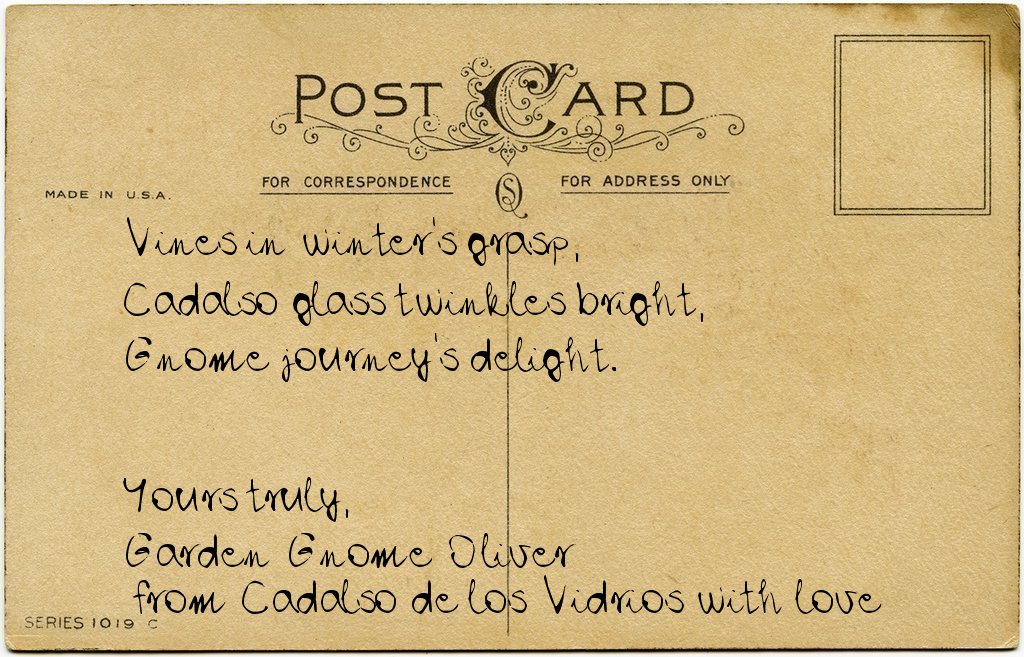 POST CARD
FOR CORRESPONDENCE
FOR ADDRESS ONLY
MADE IN U.S.A.
Vines in winter's grasp,
Cadalso glass twinkles bright,
Gnome journey's delight.
Yours truly,
Garden Gnome Oliver
from Cadalso de los Vidrios with love
SERIES 1019 C